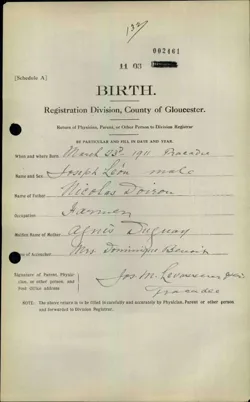 132
002461
11 03
[Schedule A]
BIRTH.
Registration Division, County of Gloucester.
Return of Physician, Parent, or Other Person to Division Registrar
BE PARTICULAR AND FILL IN DATE AND YEAR.
When and where Born March 23rd 1911 Tracadie
Name and Sex Joseph Léon male
Name of Father Nicolas Doiron
Occupation Farmer
Maiden Name of Mother Agnès Duguay
Name of Accoucheur Mrs Dominique Benoit
Signature of Parent, Physician, or other person, and Post Office address
Jos. M. Levasseur
Tracadie
NOTE. The above return is to be filled faithfully and accurately by Physician, Parent or other person and forwarded to Division Registrar.